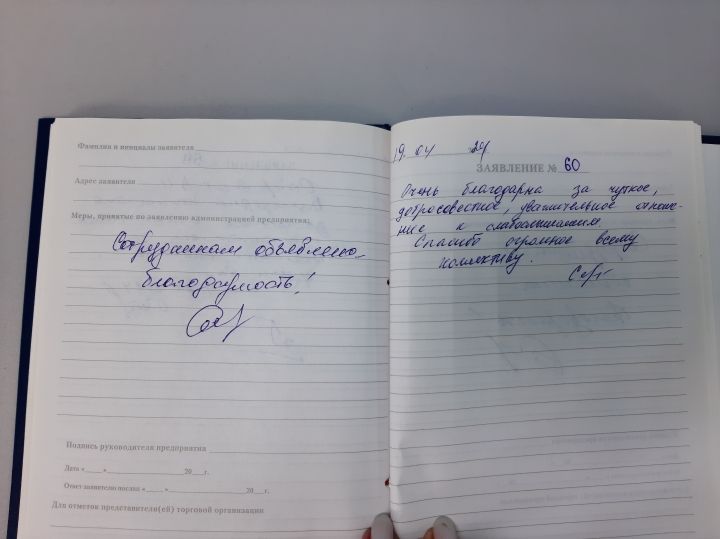 Фамилия и инициалы заявителя
Адрес заявителя
Меры, принятые по заявлению администрацией предприятия:
Сотрудникам объявлена
благодарность!
Подпись руководителя предприятия
Дата «____»____________20___г.
Ответ заявителю послан «____»____________20___г.
Для отметок представителя(ей) торговой организации
19.04 24
ЗАЯВЛЕНИЕ № 60
Очень благодарна за чуткое,
добросовестное, уважительное отноше-
ние к слабослышащим
Спасибо огромное всему
коллективу.